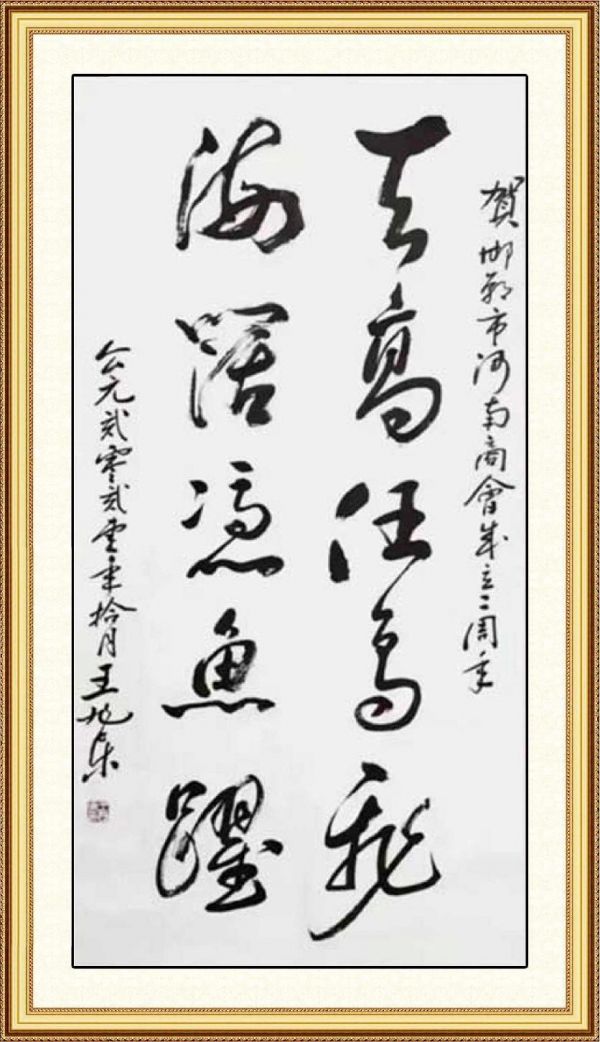 賀邯鄲市河南商會成立二周年
天高任鳥飛
海闊憑魚躍
公元貳零貳零年拾月王旭